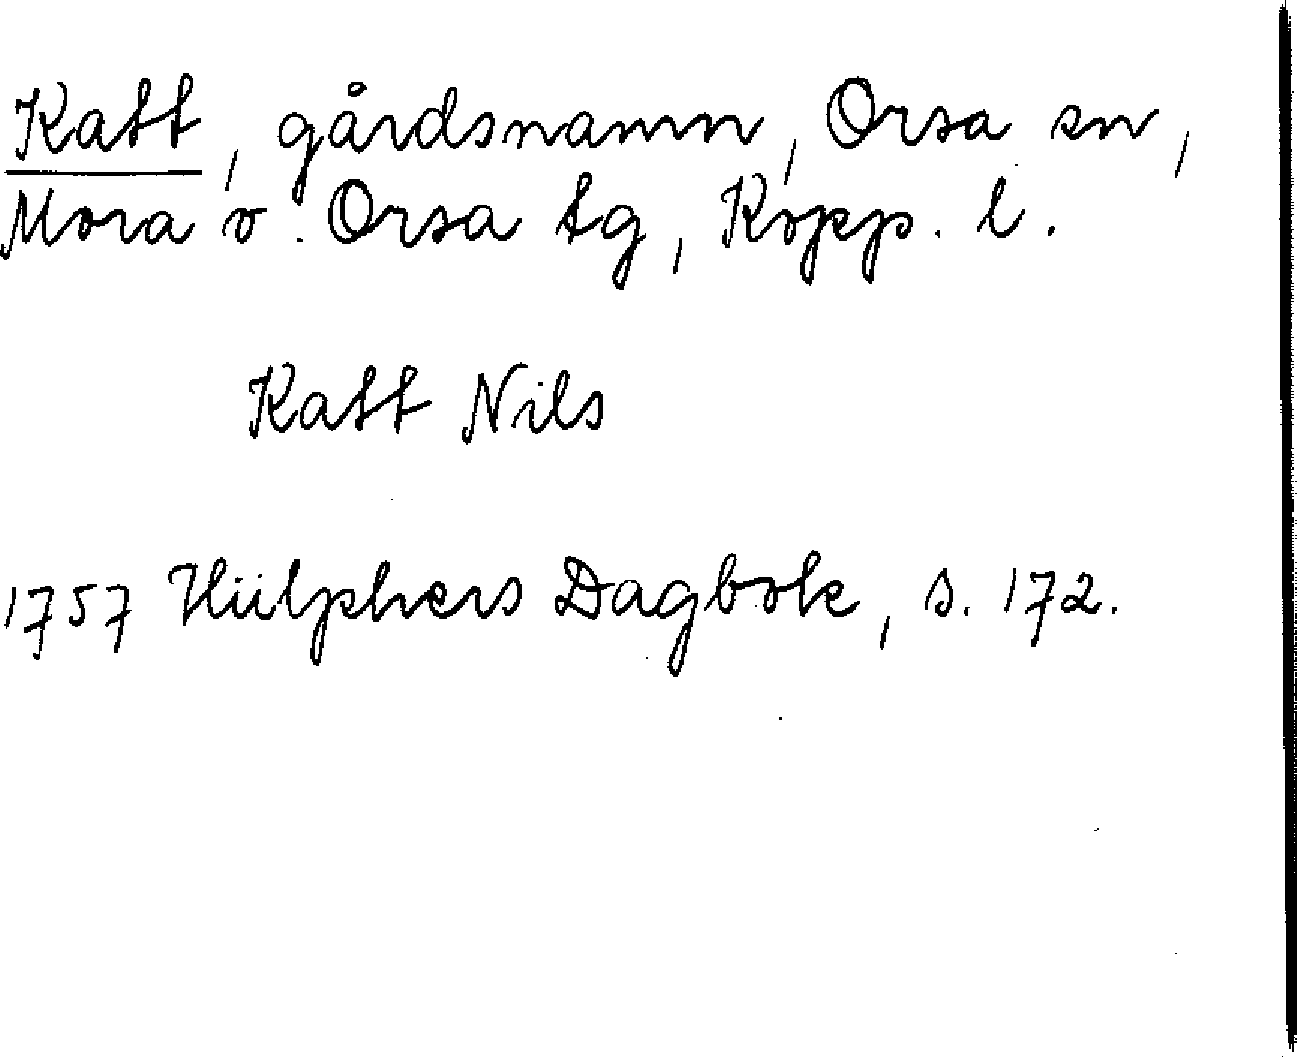 Katt, gårdsnamn, Orsa sn,
Mora o. Orsa tg, Kopp. l.
Katt Nils
1757 Hülphers Dagbok, s. 172.